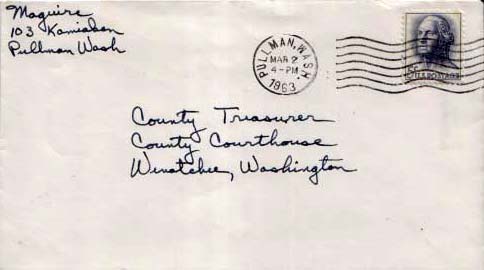 Maguire
103 Kamiaken
Pullman Wash
PULLMAN, WASH
MAR 2
4-PM
1963
5c U.S. POSTAGE
County Treasurer
County Courthouse
Wenatchee, Washington